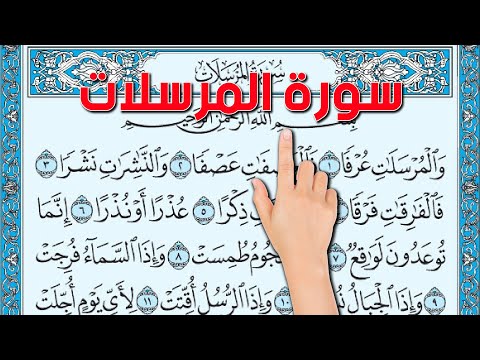 سُورَةُ المُرْسَلَات
سورة المرسلات
بِسْمِ اللَّهِ الرَّحْمَٰنِ الرَّحِيمِ
وَالْمُرْسَلَٰتِ عُرْفًا ١ فَالْعَٰصِفَٰتِ عَصْفًا ٢ وَالنَّٰشِرَٰتِ نَشْرًا ٣
فَالْفَٰرِقَٰتِ فَرْقًا ذِكْرًا ٥ عُذْرًا أَوْ نُذْرًا ٦ إِنَّمَا
تُوعَدُونَ لَوَٰقِعٌ ٧ طُمِسَتْ ٨ وَإِذَا السَّمَاءُ فُرِجَتْ
٩ وَإِذَا الْجِبَالُ ١٠ وَإِذَا الرُّسُلُ أُقِّتَتْ ١١ لِأَيِّ يَوْمٍ أُجِّلَتْ